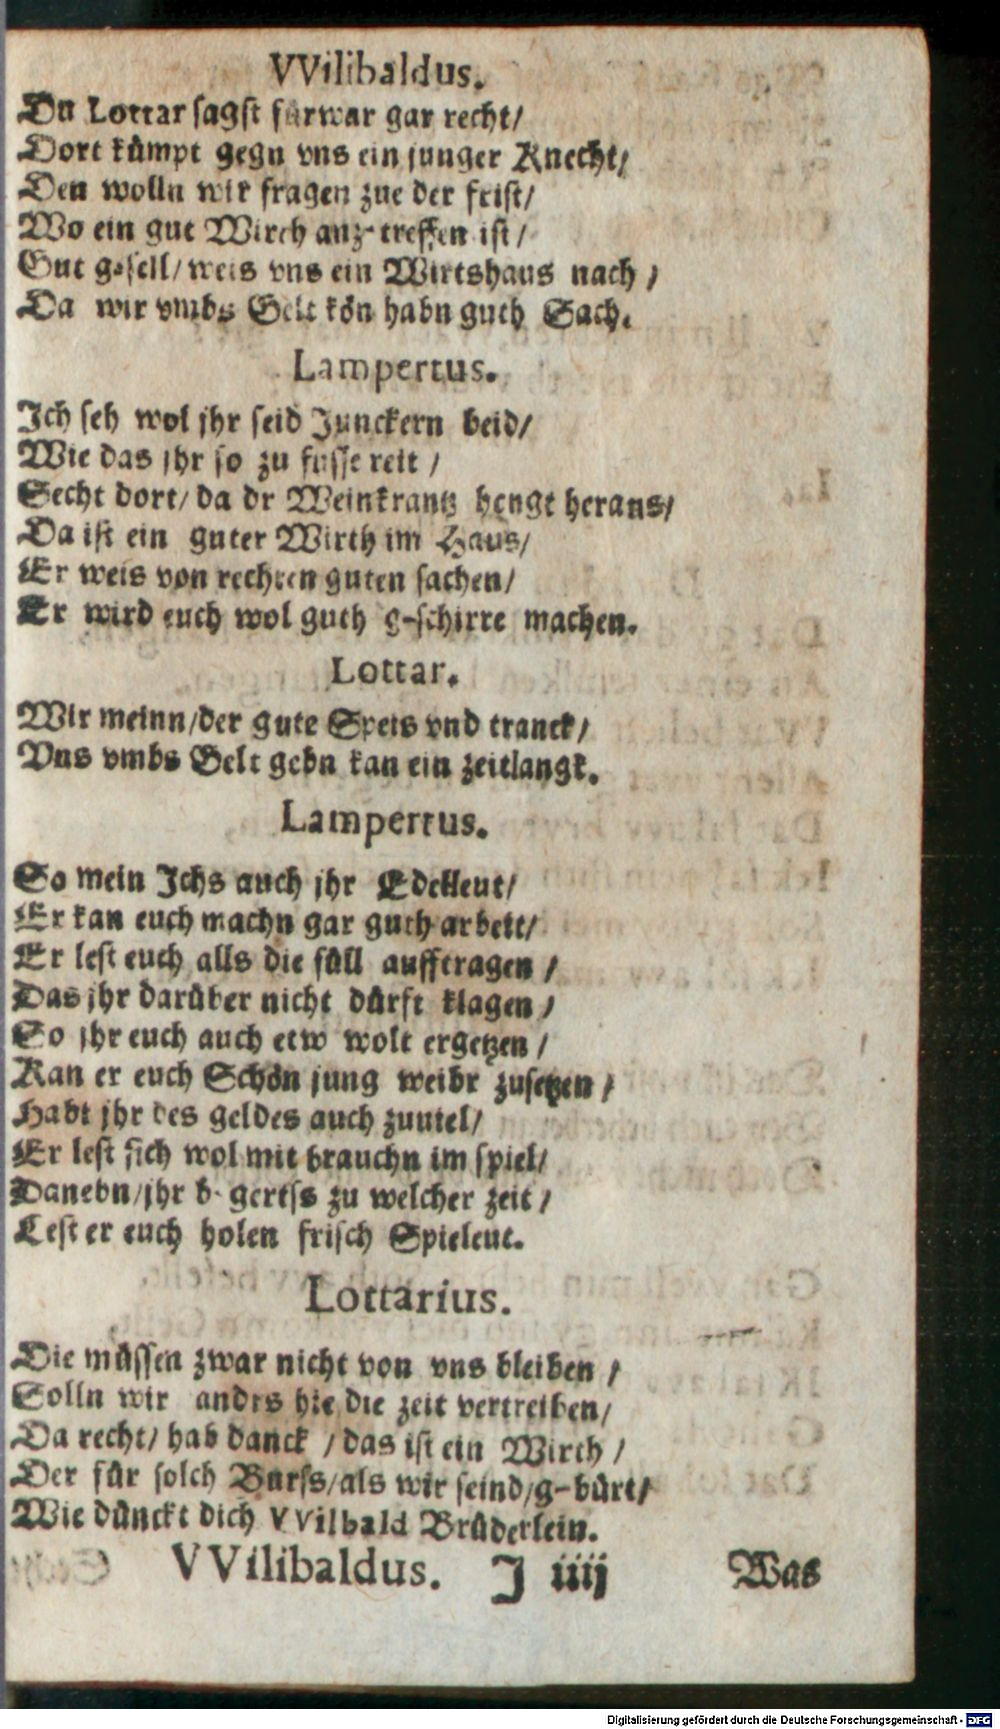 VVilibaldus.
Du Lottar sagst fürwar gar recht/
Dort kümpt gegn vns ein junger Knecht/
Den wolln wir fragen zue der frist/
Wo ein gut Wirth anz treffen ist/
Gut gesell/ weis vns ein Wirtshaus nach /
Da wir vmbs Gelt kön habn guth Sach.
Lampertus.
Ich seh wol jhr seid Junckern beid/
Wie das jhr so zu fusse reit /
Secht dort/ da dr Weinkrantz hengt heraus/
Da ist ein guter Wirth im Haus/
Er weis von rechten guten sachen/
Er wird euch wol guth g-schirre machen.
Lottar.
Wir meinn/der gute Speis vnd tranck/
Vns vmbs Gelt gebn kan ein zeitlangk.
Lampertus.
So mein Ichs auch jhr Edelleut/
Er kan euch machn gar guth arbeit/
Er lest euch alls die füll aufftragen /
Das jhr darüber nicht dürft klagen /
So jhr euch auch etw wolt ergetzen /
Kan er euch Schön jung weibr zusetzen /
Habt jhr des geldes auch zuuiel/
Er lest sich wol mit brauchn im spiel/
Danebn/jhr b gertss zu welcher zeit /
Lest er euch holen frisch Spieleut.
Lottarius.
Die müssen zwar nicht von vns bleiben /
Solln wir andrs hie die zeit vertreiben/
Da recht/ hab danck / das ist ein Wirth /
Der für solch Burss/als wir seind/g-bürt/
Wie dünckt dich VVilbald Brüderlein.
VVilibaldus. J iiij Was
Digitalisierung gefördert durch die Deutsche Forschungsgemeinschaft - DFG